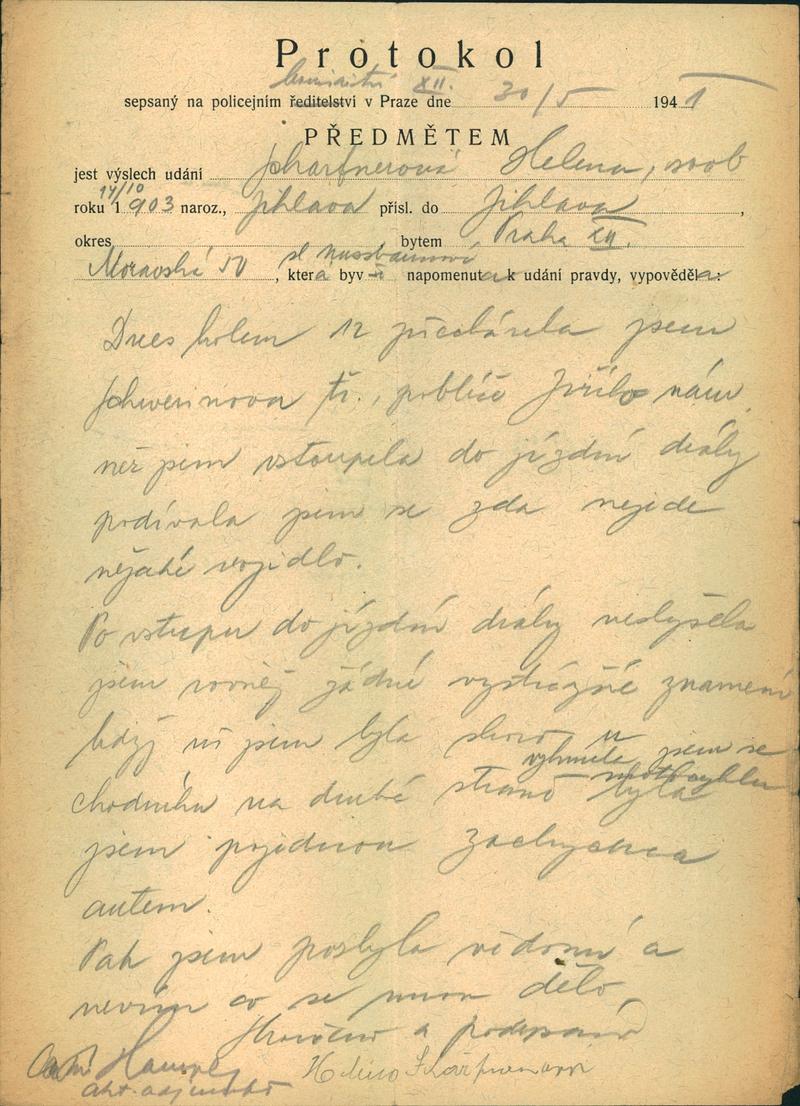 Protokol
komisařství XII.
sepsaný na policejním ředitelství v Praze dne 30/5 1941
PŘEDMĚTEM
jest výslech udání Helena, soob
14/10
roku 1903 naroz., Jihlava přísl. do Jihlava,
okres bytem Praha XII.
Moravská, která byv napomenuta k udání pravdy, vypověděla:
Dnes kolem 12 přecházela jsem
Schwerinova tř., poblíže Jiřího nám,
než jsem vstoupila do jízdní dráhy
podívala jsem se zda nejede
nějaké vozidlo.
Po vstupu do jízdní dráhy neslyšela
jsem rovněž žádné výstražné znamení
když už jsem byla skoro u
vyhnula jsem se
motocyklu
chodníku na druhé straně byla
jsem pojednou zachycena
autem.
Pak jsem pozbyla vědomí a
nevím co se mnou dělo,
Skončeno a podepsáno
Helena